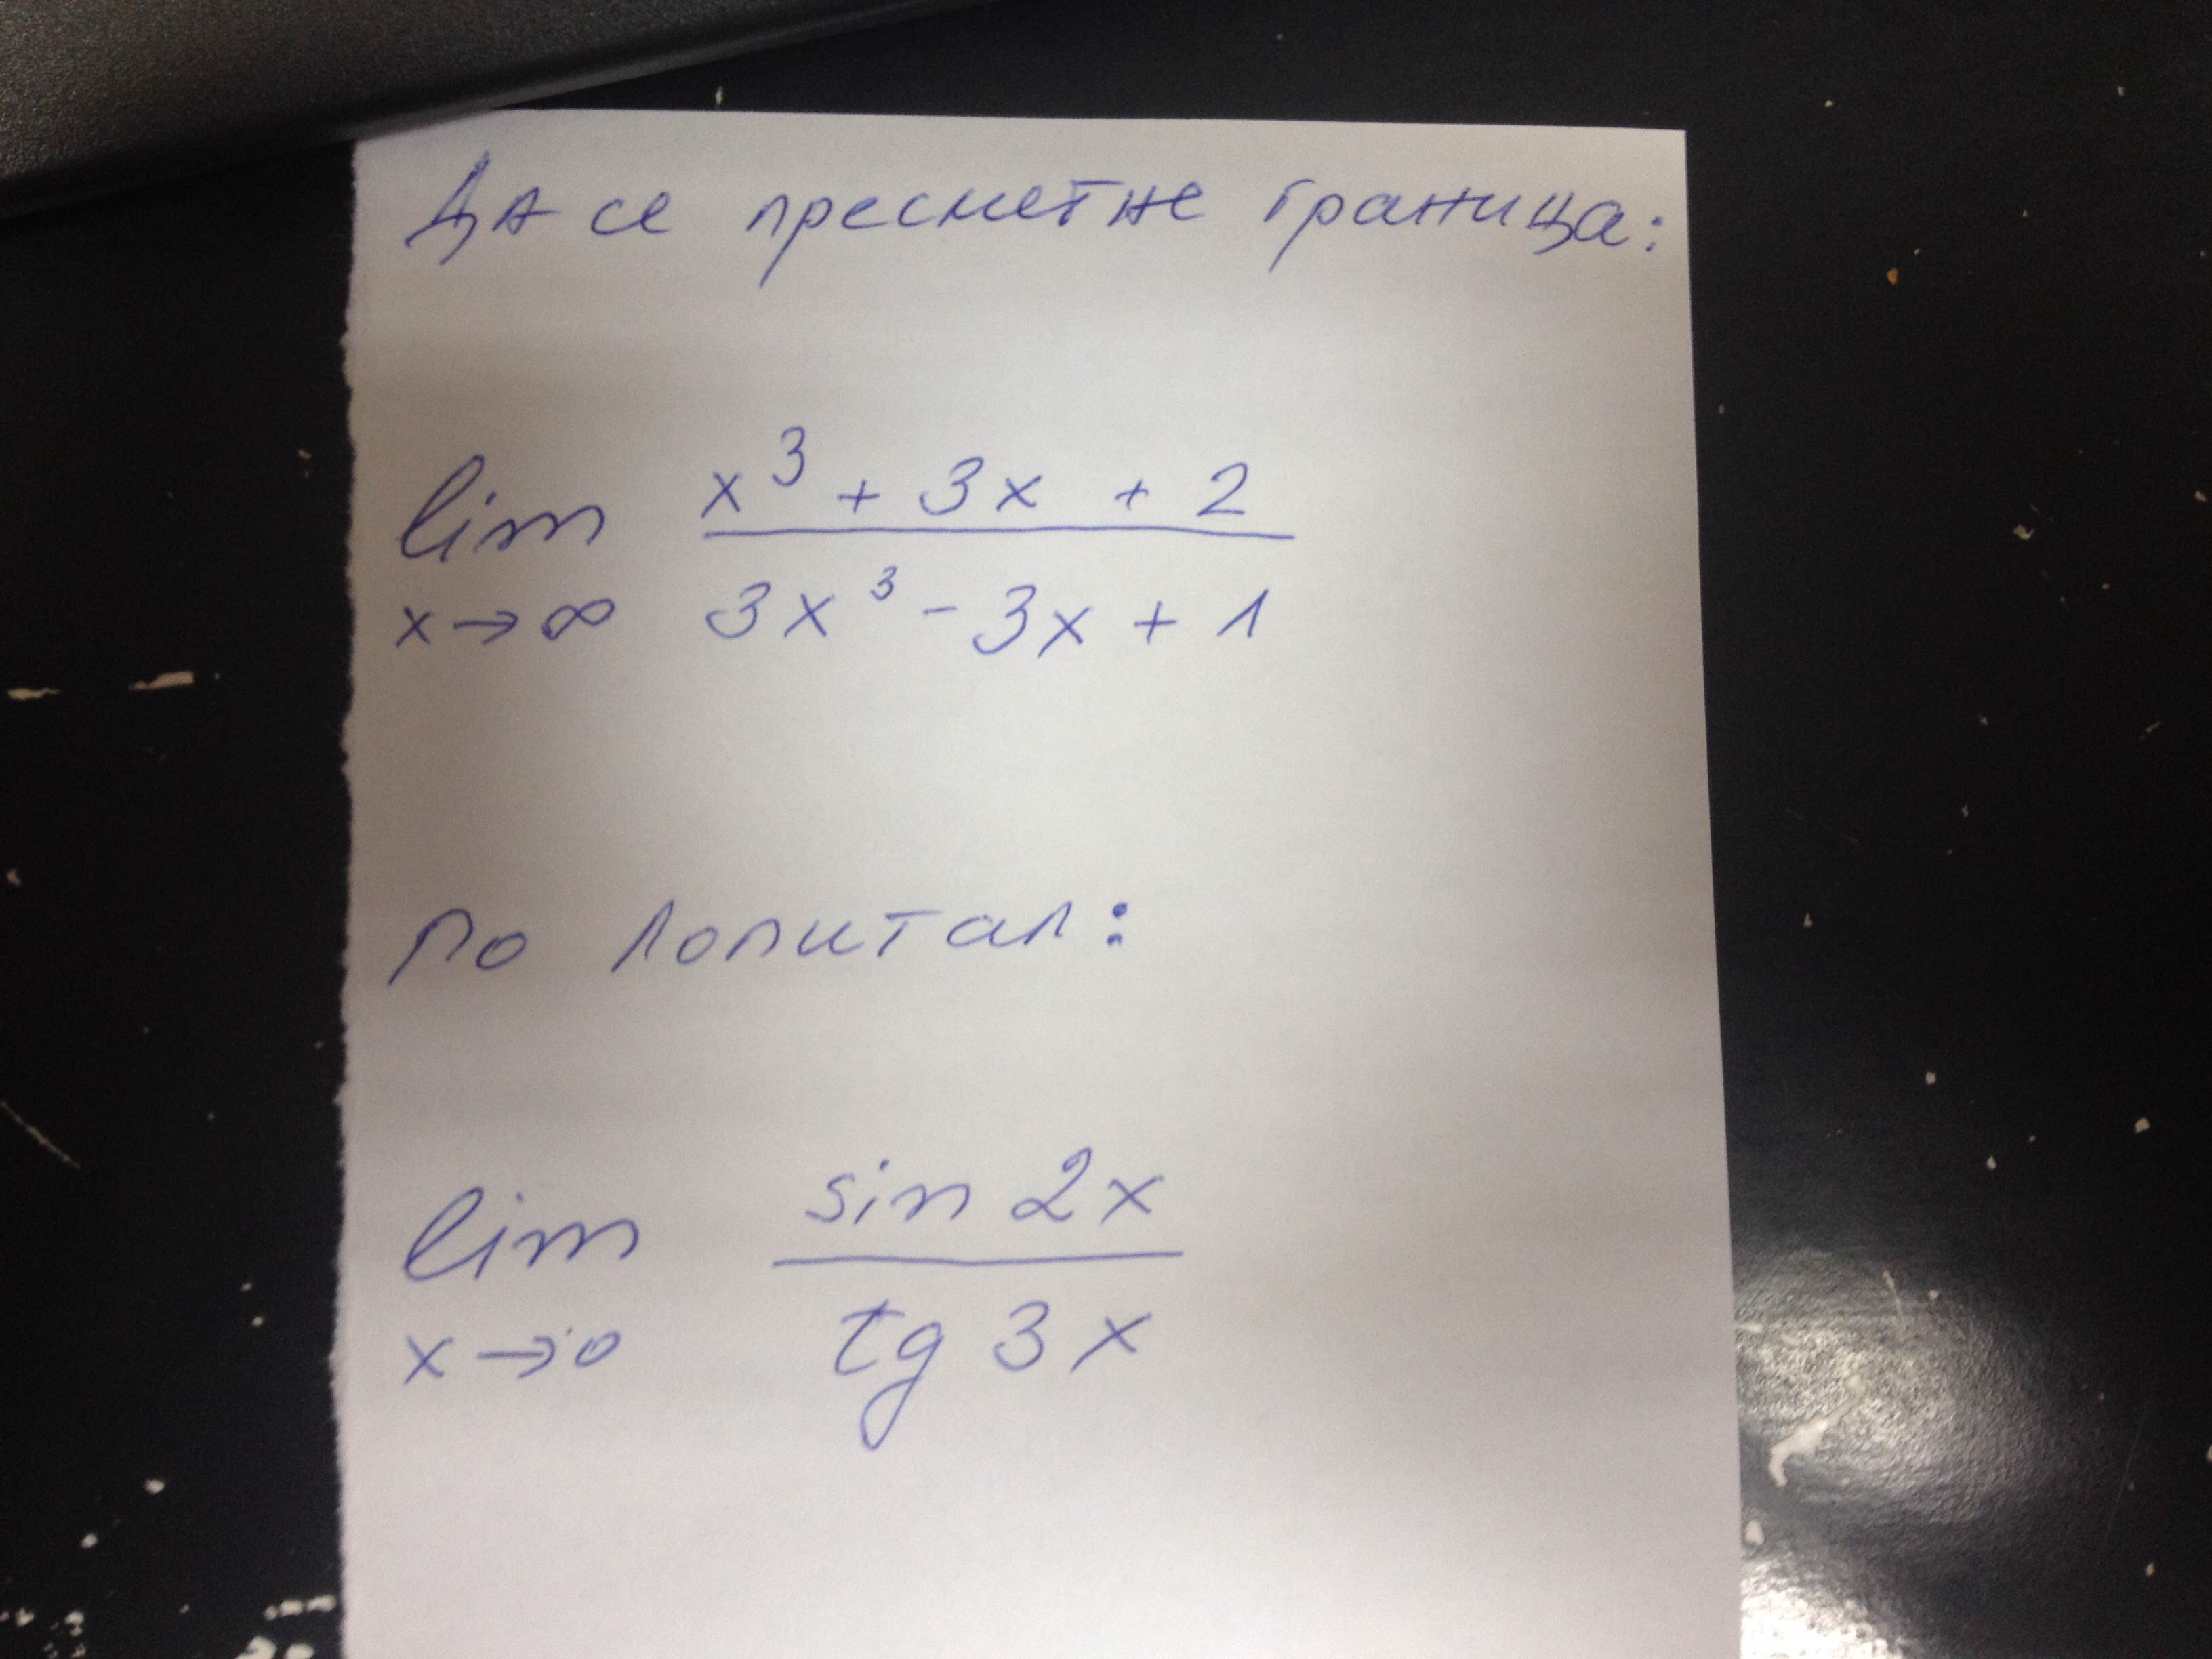 Да се пресметне граница:
lim x³ + 3x + 2
x→∞ 3x³ - 3x + 1
по Лопитал:
lim sin 2x
x→0 tg 3x